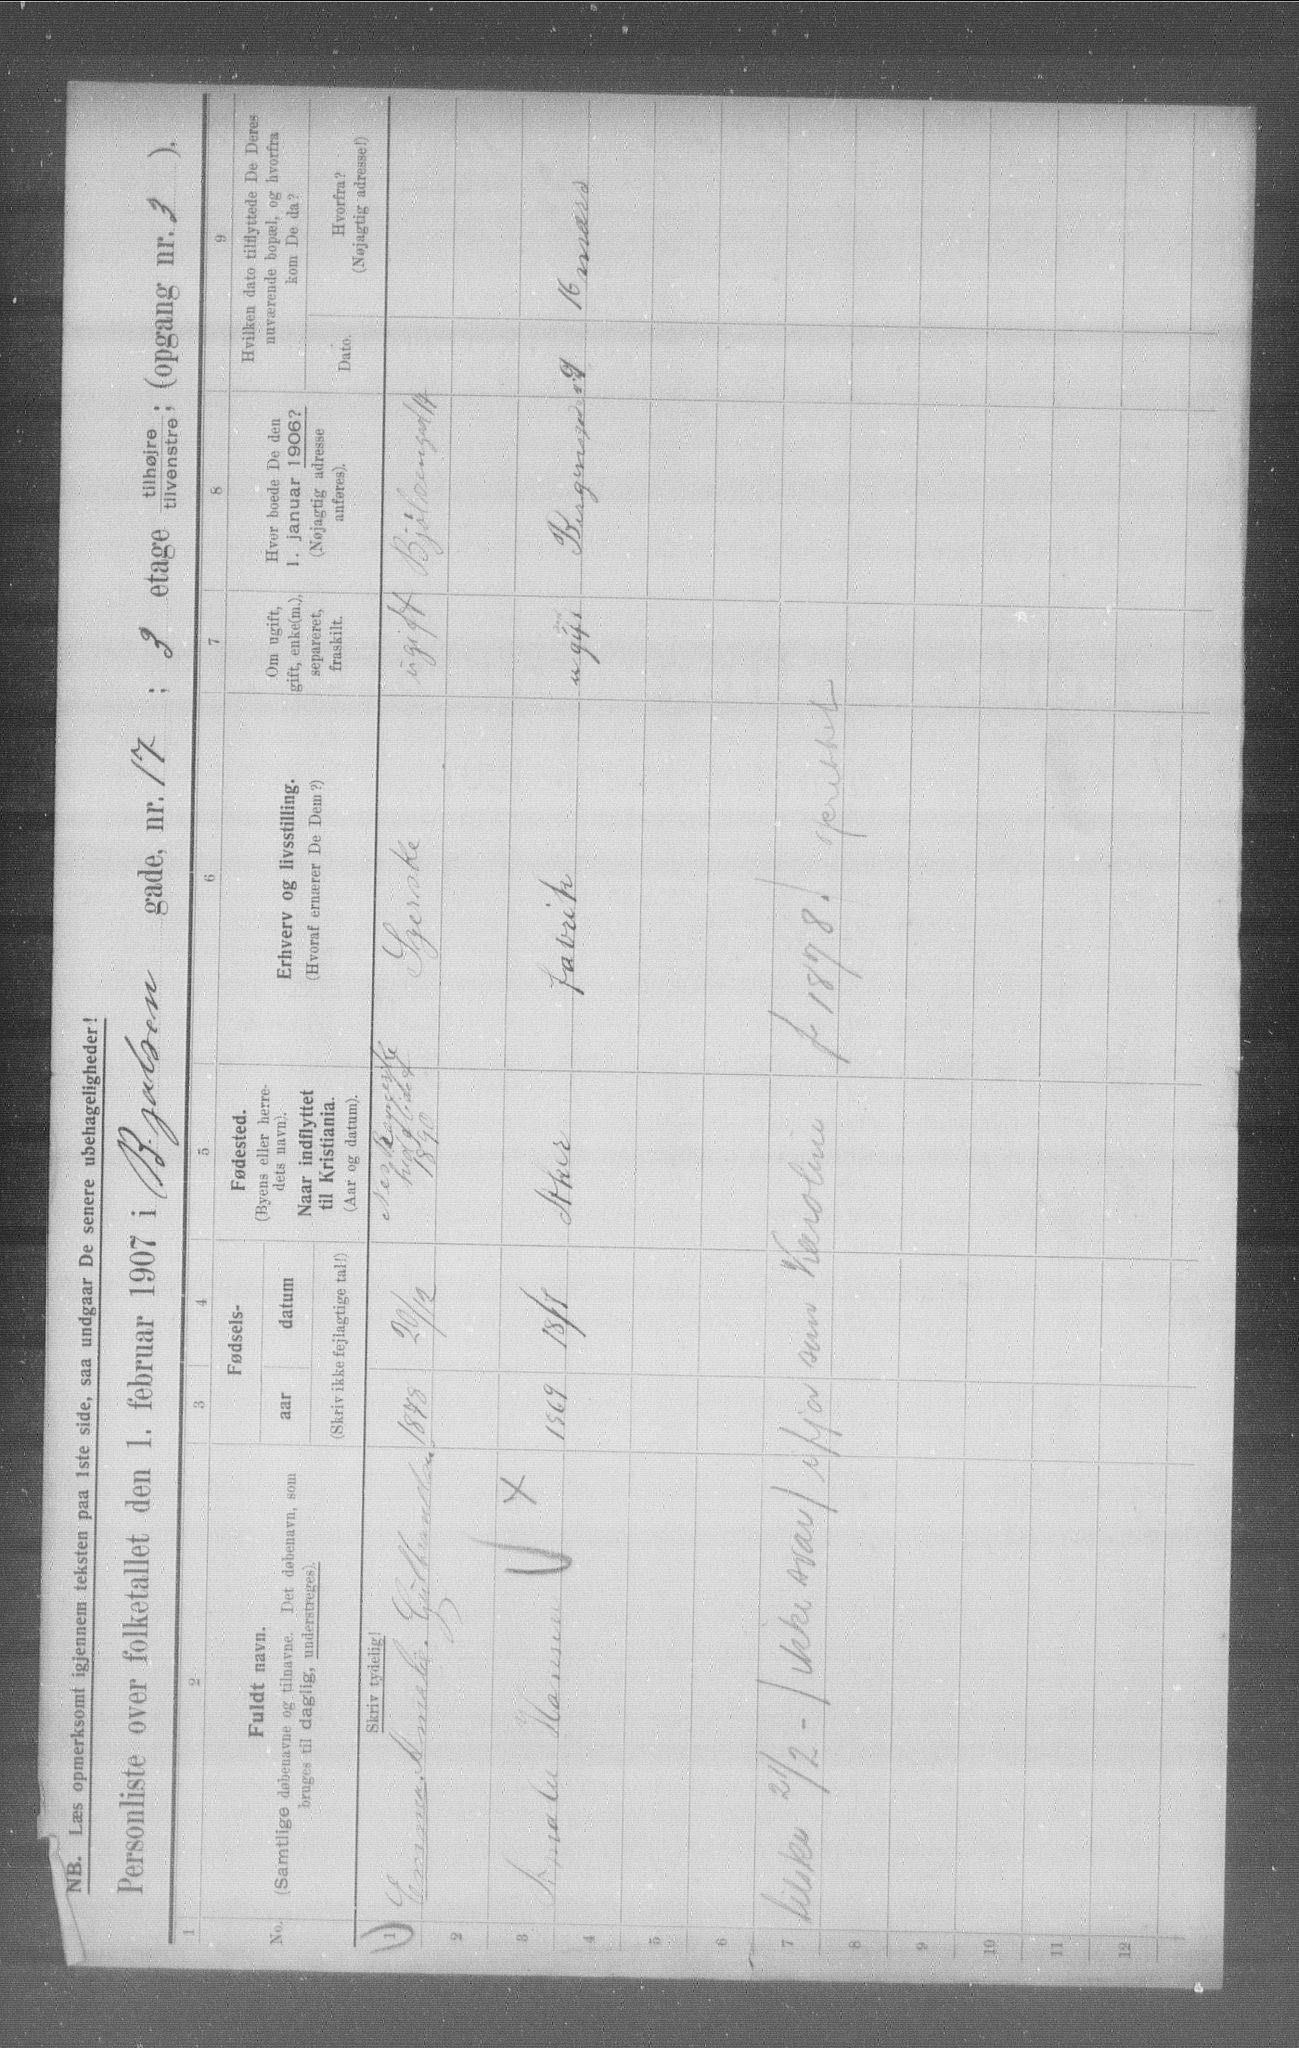 NB. Læs opmerksomt igjennem teksten paa 1ste side, saa undgaar De senere ubehageligheder!
Personliste over folketallet den 1. februar 1907 i Bjølsen gade, nr. 17 ; 3 etage tilhøjre tilvenstre ; (opgang nr. 3 ).
1 2 3 4 5 6 7 8 9
No.
Fuldt navn.
(Samtlige døbenavne og tilnavne. Det døbenavn, som
bruges til daglig, understreges).
Skriv tydelig!
Fødsels-
aar datum
(Skriv ikke fejlagtige tal!)
Fødested.
(Byens eller herre-
dets navn).
Naar indflyttet
til Kristiania.
(Aar og datum).
Erhverv og livsstilling.
(Hvoraf ernærer De Dem?)
Om ugift,
gift, enke(m.),
separeret,
fraskilt.
Hvor boede De den
1. januar 1906?
(Nøjagtig adresse
anføres).
Hvilken dato tilflyttede De Deres
nuværende bopæl, og hvorfra
kom De da?
Dato.
Hvorfra?
(Nøjagtig adresse!)
1 Emma Amalie 1848 1890 Syerske ugift
2
3 Hansen X 1869 Aker fabrik ugift 16 mars
4
5
6
7 2/2 - / ikke svar / som Karoline f 1878 /
8
9
10
11
12